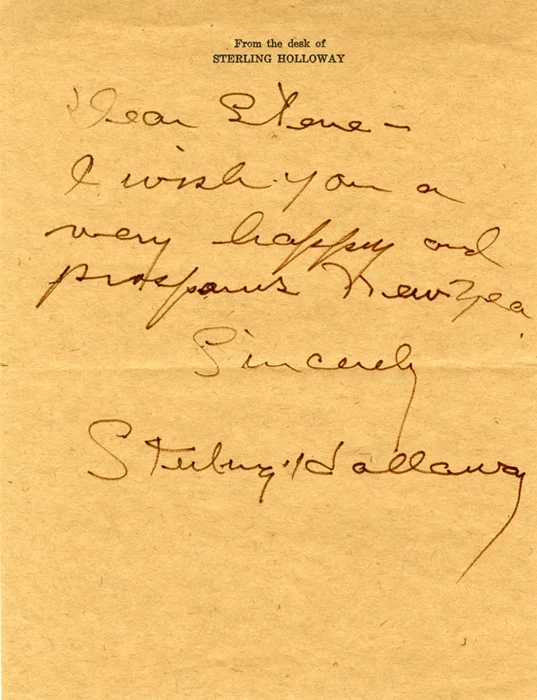 From the desk of
STERLING HOLLOWAY
Dear Steve —
I wish you a
very happy and
prosperous New Yea
Sincerely
Sterling Holloway